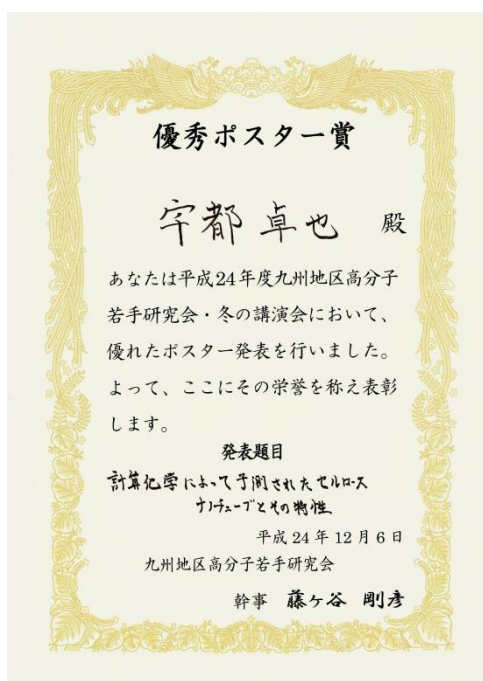 優秀ポスター賞
宇都卓也 殿
あなたは平成24年度九州地区高分子
若手研究会・冬の講演会において、
優れたポスター発表を行いました。
よって、ここにその栄誉を称え表彰
します。
発表題目
計算化学によって予測されたセルロース
ナノチューブとその特性
平成 24 年 12 月 6 日
九州地区高分子若手研究会
幹事 藤ヶ谷 剛彦